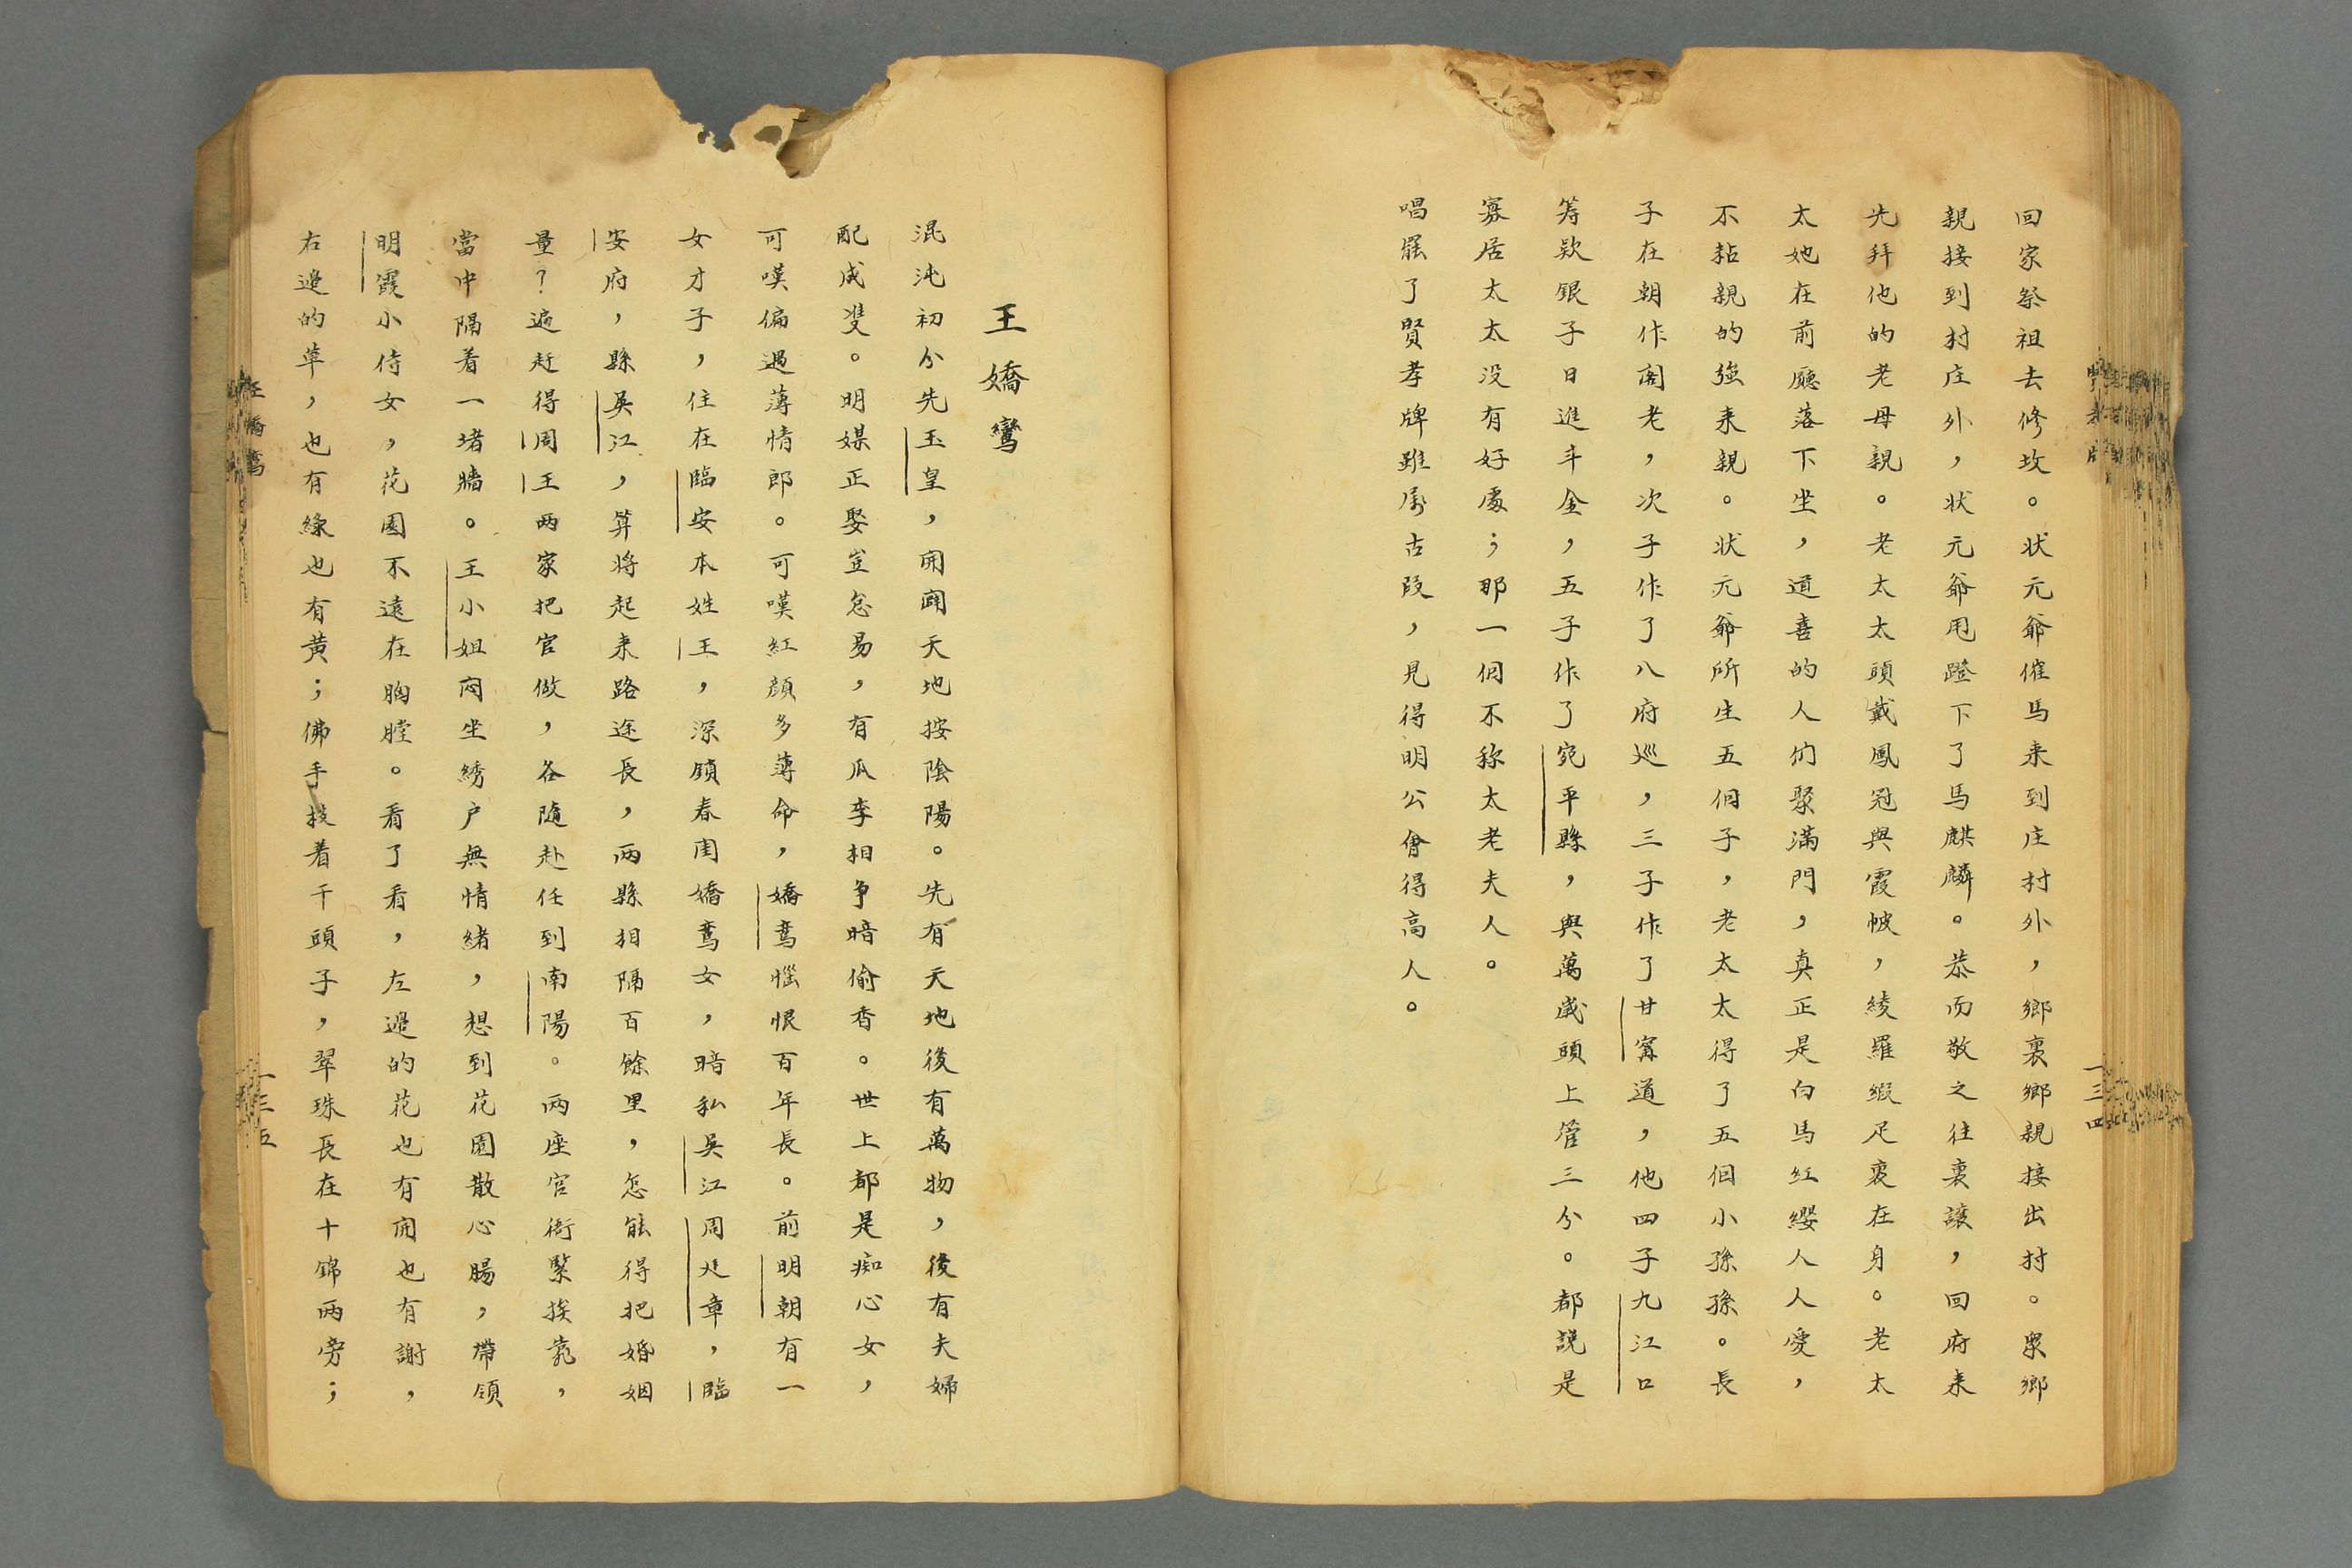 回家祭祖去修坟。状元爺催馬来到庄村外，鄉裏鄉親接出村。衆鄉
親接到村庄外，状元爺甩蹬下了馬麒麟。恭而敬之往裏讓，回府来
先拜他的老母親。老太太頭戴鳳冠與霞帔，綾羅緞疋裹在身。老太
太她在前廳落下坐，道喜的人们聚滿門，真正是白馬红纓人人愛，
不粘親的強来親。状元爺所生五個子，老太太得了五個小孫孫。長
子在朝作閣老，次子作了八府巡，三子作了甘甯道，他四子九江口
筹欵銀子日進斗金，五子作了宛平縣，與萬歲頭上管三分。都説是
寡居太太没有好處；那一個不称太老夫人。
唱罷了賢孝牌雖属古段，見得明公會得高人。
一三四
王嬌鸞
混沌初分先玉皇，開闢天地按陰陽。先有天地後有萬物，後有夫婦
配成雙。明媒正娶豈怠易，有瓜李相争暗偷香。世上都是痴心女，
可嘆偏遇薄情郎。可嘆紅顔多薄命，嬌鸞惱恨百年長。前明朝有一
女才子，住在臨安本姓王，深鎖春閨嬌鸞女，暗私吳江周廷章，臨
安府，縣吳江，算將起来路途長，兩縣相隔百餘里，怎能得把婚姻
量？遍赶得周王两家把官做，各隨赴任到南陽。两座官衙緊挨靠，
當中隔着一堵牆。王小姐悶坐綉户無情緒，想到花園散心腸，帶領
明霞小侍女，花園不遠在胸膛。看了看，左邉的花也有開也有謝，
右邉的草，也有綠也有黄；佛手枝着千頭子，翠珠長在十錦两旁；
王嬌鸞
一三五